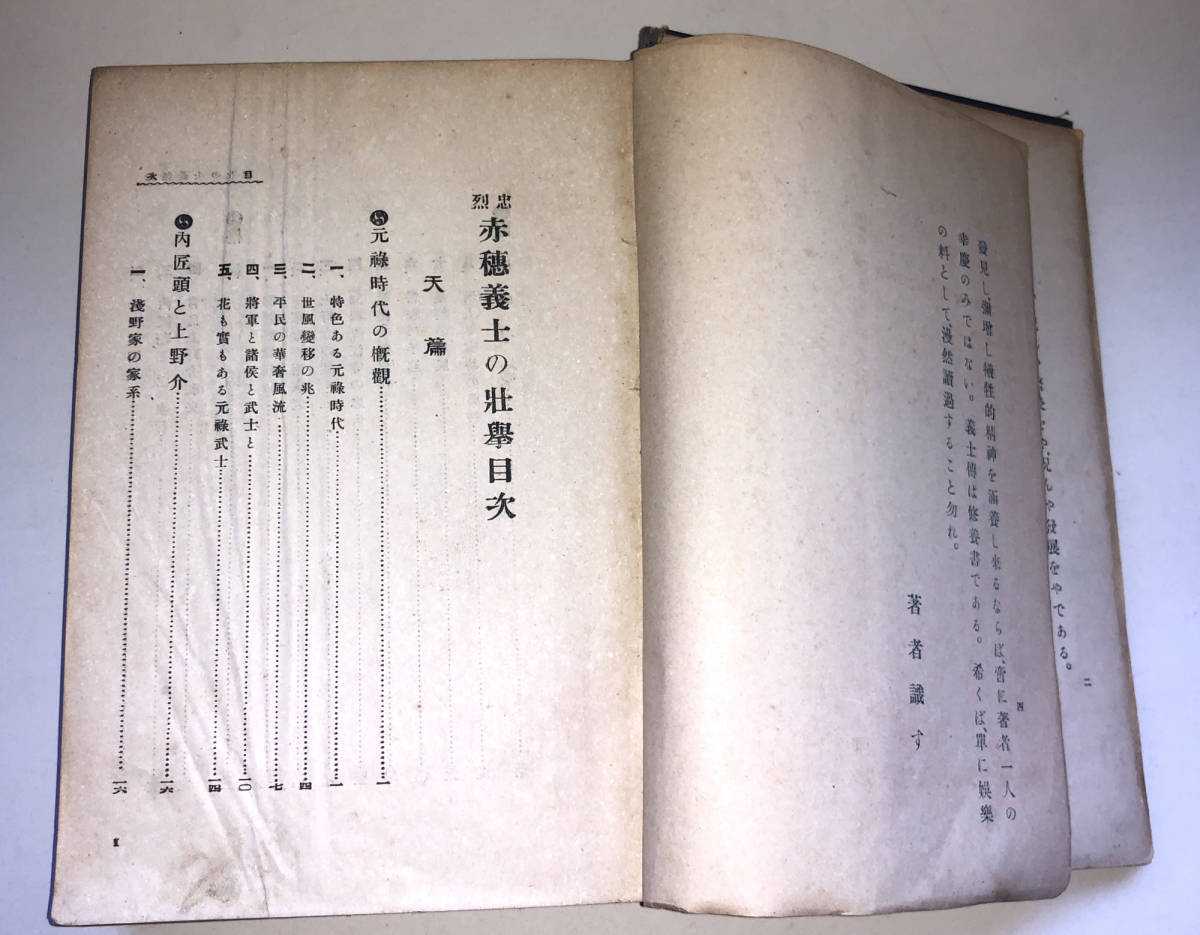 や發展をやである。
二
四
發見し、彌增し犧牲的精神を涵養し來るならば、啻に著者一人の
幸慶のみではない。義士傳は修養書である。希くば、單に娛樂
の料として漫然讀過すること勿れ。
著者識す
忠烈 赤穗義士の壯擧目次
天篇
元祿時代の槪觀……一
一、特色ある元祿時代……一
二、世風變移の兆……四
三、平民の華奢風流……七
四、將軍と諸侯と武士と……一〇
五、花も實もある元祿武士……一四
內匠頭と上野介……一六
一、淺野家の家系……一六
目次
一